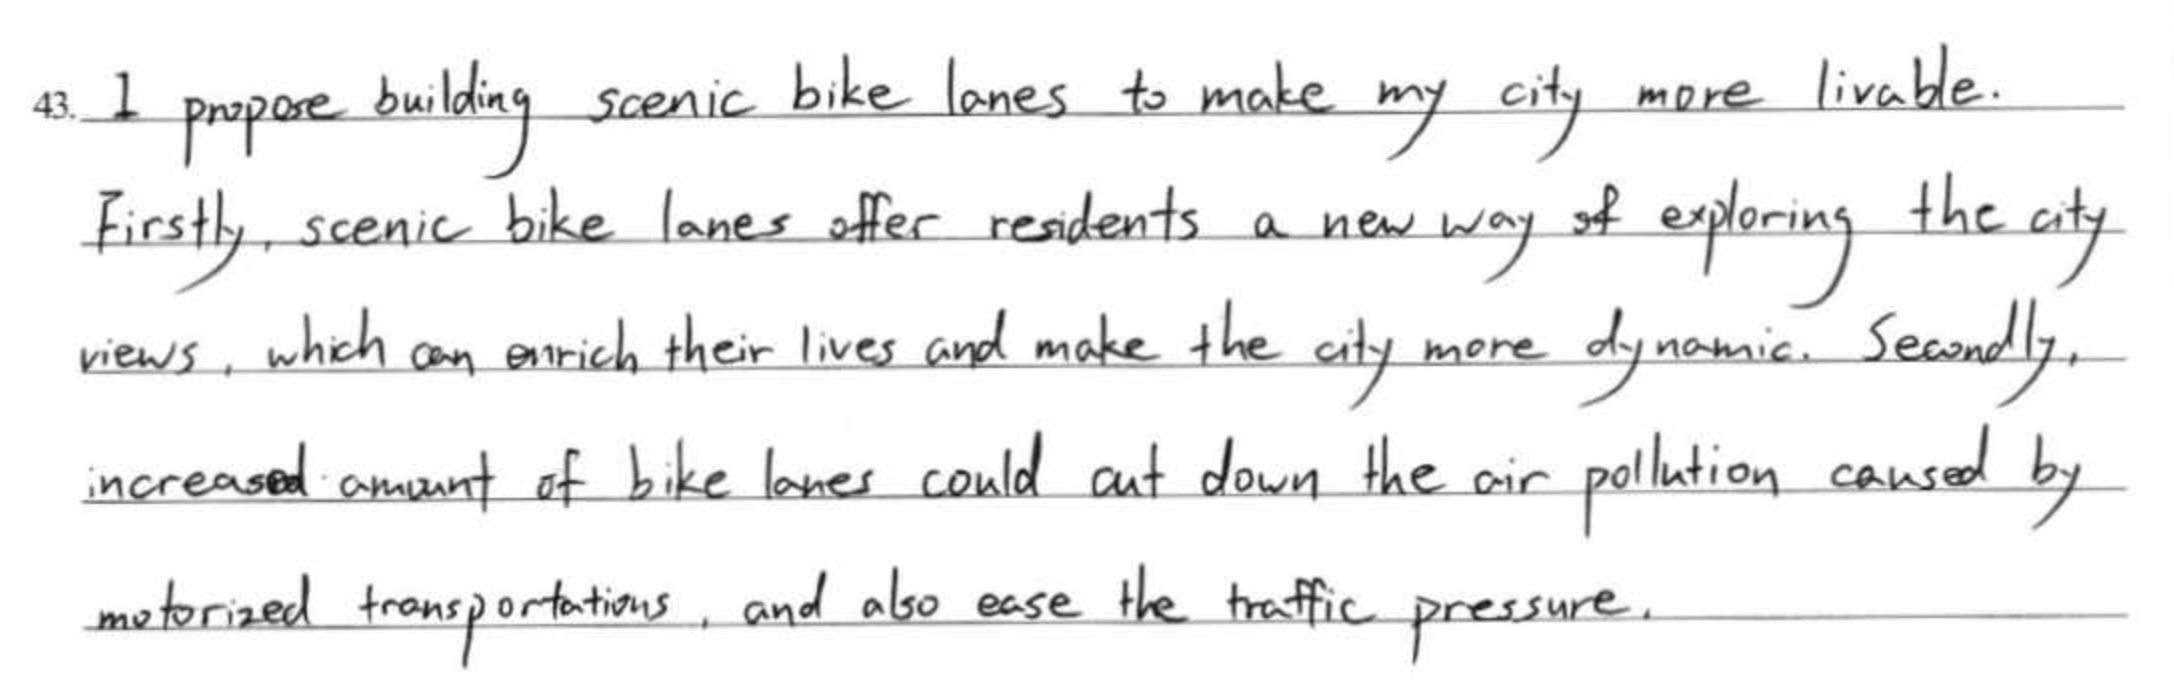 43. I propose building scenic bike lanes to make my city more livable.
Firstly, scenic bike lanes offer residents a new way of exploring the city
views, which can enrich their lives and make the city more dynamic. Secondly,
increased amount of bike lanes could cut down the air pollution caused by
motorized transportations, and also ease the traffic pressure.